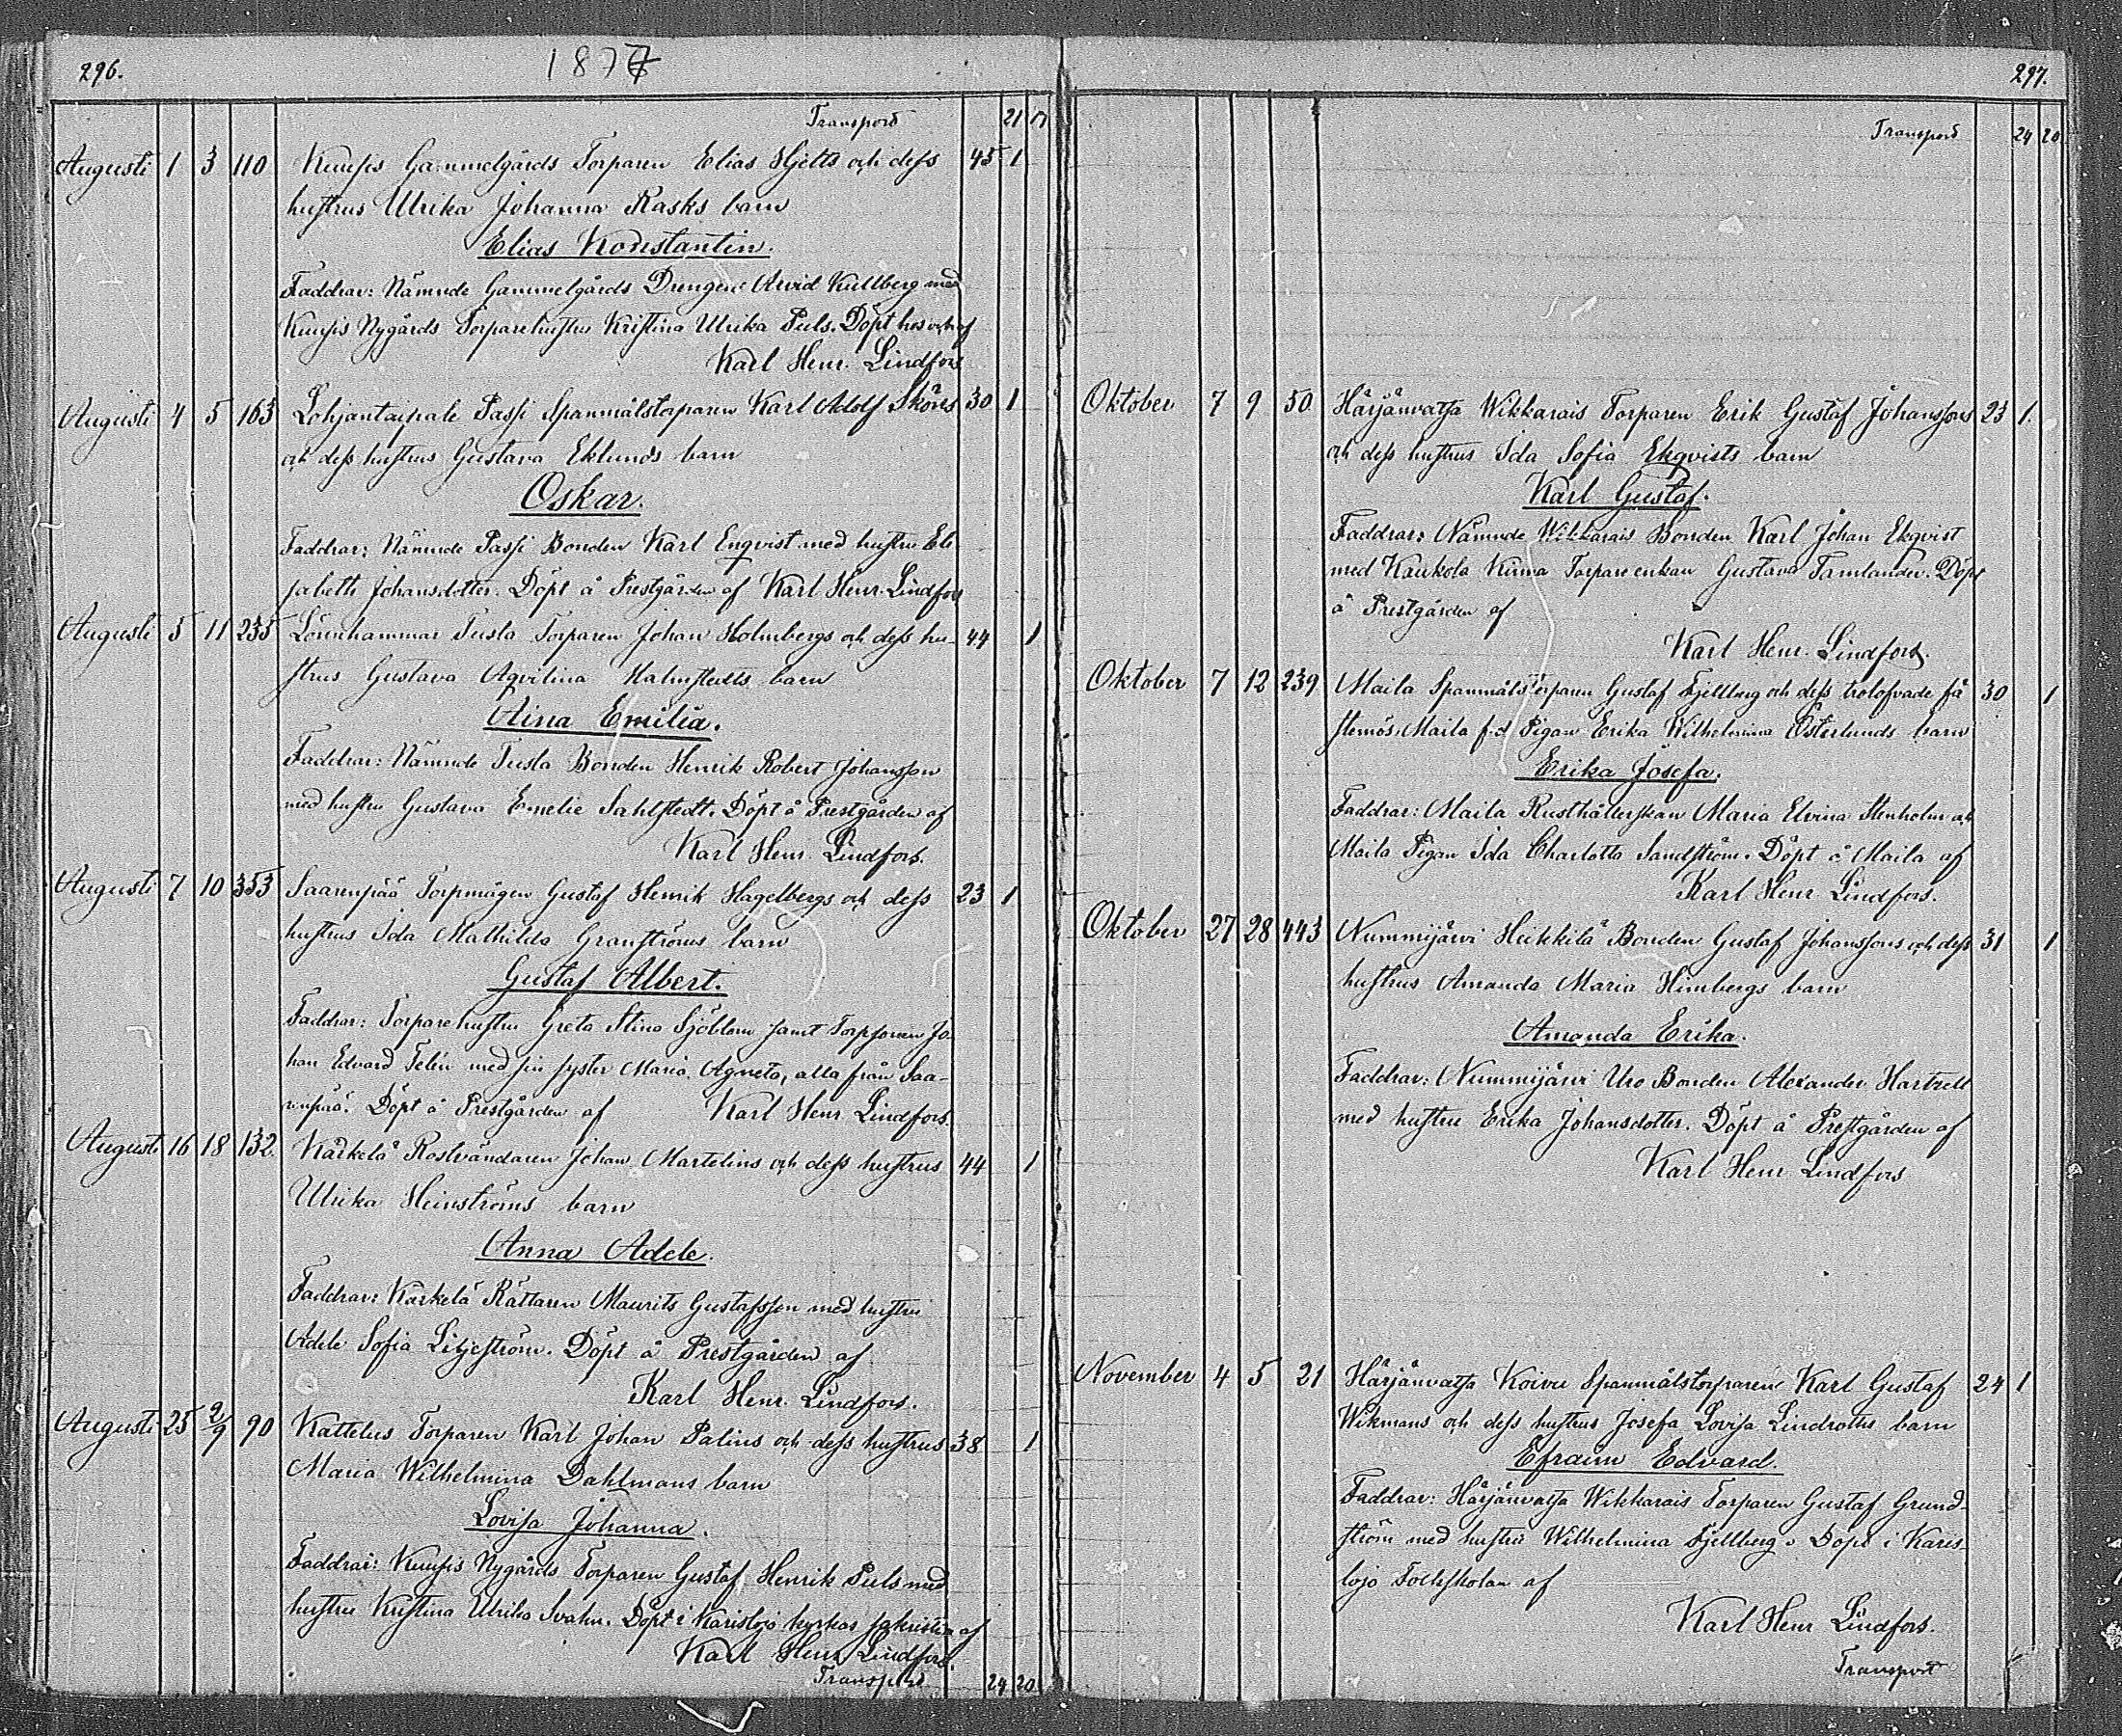 296.
1877
Transport 21 17
Augusti 1 3 110 Kuusis Gammelgårds Torparen Elias Hjelts och dess 45 1
hustrus Ulrika Johanna Rasks barn
Elias Konstantin.
Faddrar: Nämnde Gammelgårds Drengen Arvid Kullberg med
Kuusis Nygårds Torparehustru Kristina Ulrika Puls. Döpt hos och af
Karl Henr. Lindfors
Augusti 4 5 163 Lohjantaipale Passi Spanmålstorparen Karl Adolf Sköns 30 1
och dess hustrus Gustava Eklunds barn
Oskar.
Faddrar: Nämnde Passi Bonden Karl Enqvist med hustru Eli-
sabeth Johansdotter. Döpt å Prestgården af Karl Henr. Lindfors
Augusti 5 11 235 Lönnhammar Tusla Torparen Johan Holmbergs och dess hu- 44 1
strus Gustava Aqvilina Malmstedts barn
Aina Emilia.
Faddrar: Nämnde Tusla Bonden Henrik Robert Johansson
med hustru Gustava Emelie Sahlstedt. Döpt å Prestgården af
Karl Henr. Lindfors.
Augusti 7 10 353 Saarenpää Torpmågen Gustaf Henrik Hagelbergs och dess 23 1
hustrus Ida Mathilda Granströms barn
Gustaf Albert.
Faddrar: Torparehustru Greta Stina Sjöblom samt Torpsonen Jo-
han Edvard Felin med sin syster Maria Agneta, alla från Saa-
renpää. Döpt å Prestgården af Karl Henr. Lindfors.
Augusti 16 18 132. Kärkelä Rostvändaren Johan Martelins och dess hustrus 44 1
Ulrika Heinströms barn
Anna Adele.
Faddrar: Kärkelä Rättaren Maurits Gustafsson med hustru
Adele Sofia Liljeström. Döpt å Prestgården af
Karl Henr. Lindfors.
Augusti 25 2/9 90 Kattelus Torparen Karl Johan Palins och dess hustrus 38 1
Maria Wilhelmina Dahlmans barn
Lovisa Johanna.
Faddrar: Kuusis Nygårds Torparen Gustaf Henrik Puls med
hustru Kristina Ulrika Svahn. Döpt i Karislojo kyrkas sakristia af
Karl Henr. Lindfors.
Transport 24 20
297.
Transport 24 20
Oktober 7 9 50 Härjänvatsa Wikkarais Torparen Erik Gustaf Johanssons 23 1.
och dess hustrus Ida Sofia Ekqvists barn
Karl Gustaf.
Faddrar: Nämnde Wikkarais Bonden Karl Johan Ekqvist
med Kaukola Kirma Torpareenkan Gustava Tamlander. Döpt
å Prestgården af
Karl Henr. Lindfors.
Oktober 7 12 239 Maila Spanmålstorparen Gustaf Fjellberg och dess trolofvade fä 30 1
stemös, Maila f.d Pigan Erika Wilhelmina Österlunds barn
Erika Josefa.
Faddrar: Maila Rusthållerskan Maria Elvira Stenholm och
Maila Pigan Ida Charlotta Sandström. Döpt å Maila af
Karl Henr Lindfors.
Oktober 27 28 443 Nummijärvi Heikkilä Bonden Gustaf Johanssons och dess 31 1
hustrus Amanda Maria Himbergs barn
Amanda Erika.
Faddrar: Nummijärvi Uro Bonden Alexander Hartzell
med hustru Erika Johansdotter. Döpt å Prestgården af
Karl Henr Lindfors
November 4 5 21 Härjänvatsa Koivu Spanmålstorparen Karl Gustaf 24 1
Wikmans och dess hustrus Josefa Lovisa Lindroths barn
Efraim Edvard.
Faddrar: Härjänvatsa Wikkarais Torparen Gustaf Grund-
ström med hustru Wilhelmina Fjellberg. Döpt i Karis-
lojo Folkskolan af
Karl Henr Lindfors.
Transport